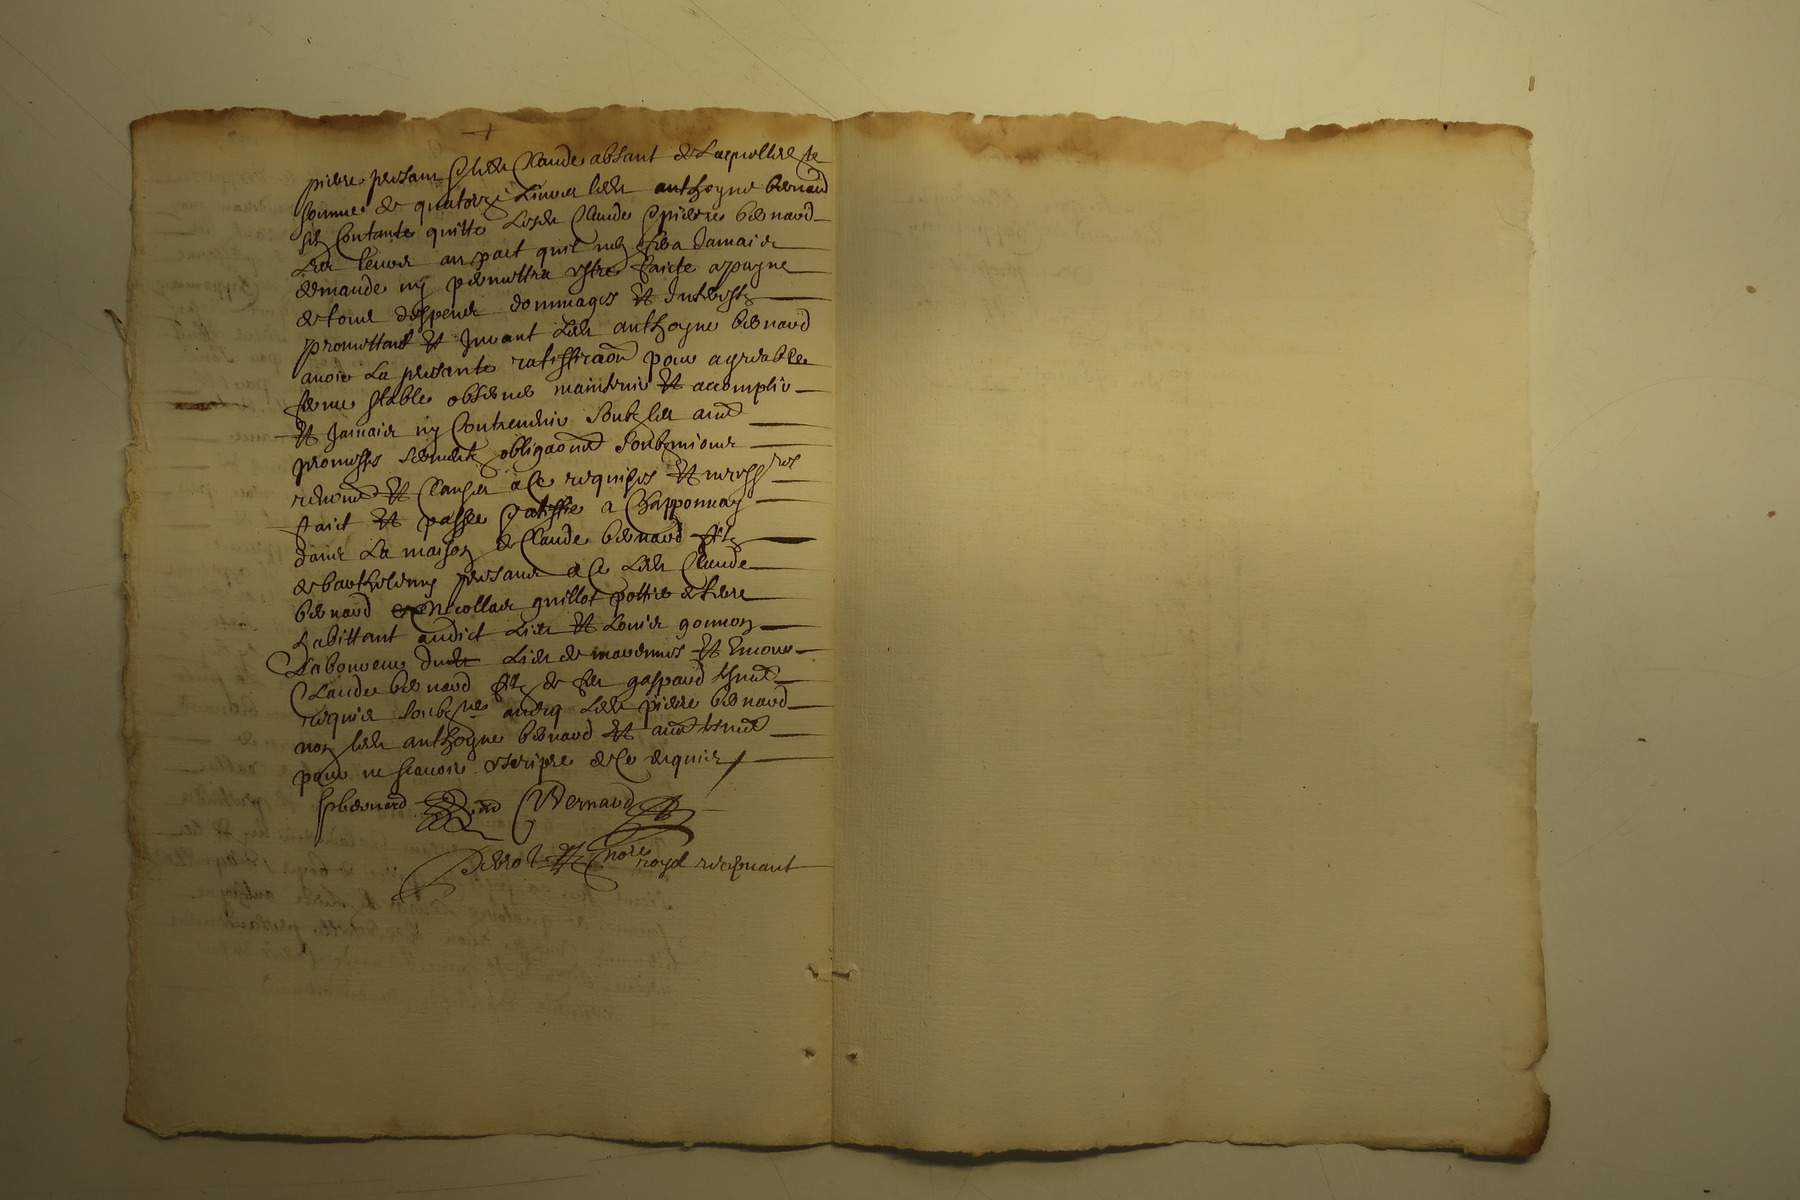 pierre presant & led Claude absant de laquelle dte
somme de quatorze livres led anthoyne bernard
sest Contante quitte lesd Claude & pierre bernard
demande ny permettra estre faicte a poyne
de tous despens dommages et Interestz
promettant et Jurant led anthoyne bernard
avoir la presante ratiffication pour agreable
ferme stable observer maintenir et accomplir
et Jamais ny Contrevenir soubz les aud
promesses serments obligaons soubmions
renons et Clauses a Ce requises et necessres
faict et passe a Chapponnay
dans la maison de Claude bernard filz
de barthelemy presans a Ce led Claude
bernard Nicollas guillot pottier de terre
habittant audict lieu et Louis gonnon
laboureur dud lieu de marennes et Encour
Claude bernard filz de feu gaspard
requis soubzne led pierre bernard
non led anthoyne bernard et
pour ne scavoir escripre de Ce requis
P bernard C Bernard
nore royal recepvant